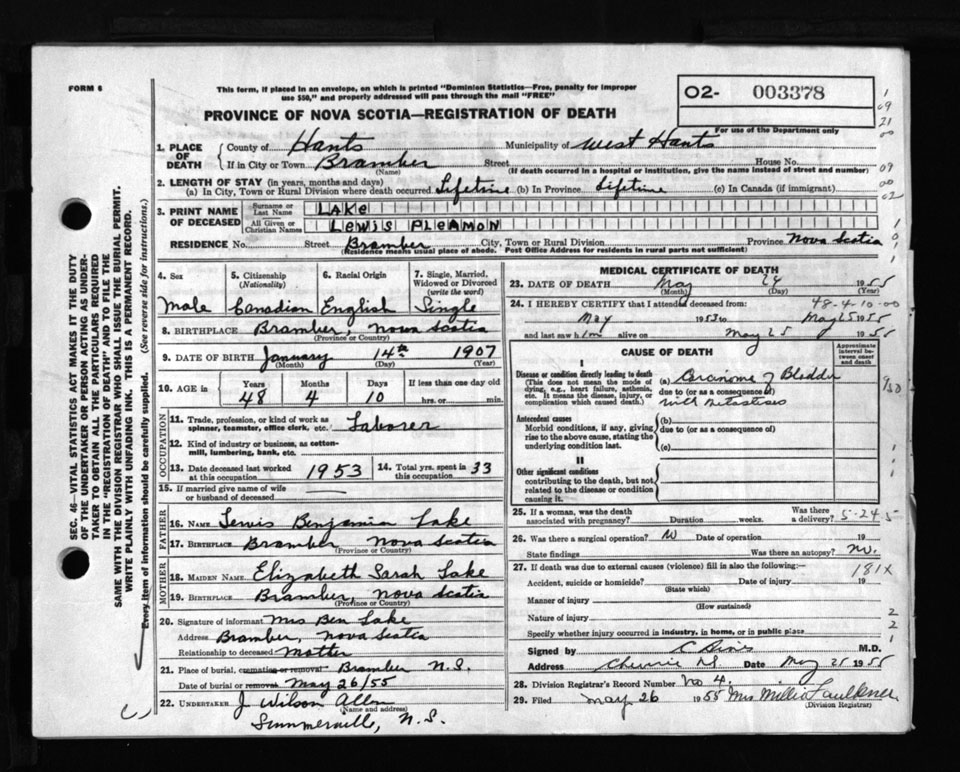 FORM 6
This form, if placed in an envelope, on which is printed "Dominion Statistics—Free, penalty for improper
use $50," and properly addressed will pass through the mail "FREE"
02- 003378
PROVINCE OF NOVA SCOTIA—REGISTRATION OF DEATH
For use of the Department only
1. PLACE OF DEATH County of Hants Municipality of West Hants
If in City or Town Bramber Street House No.
(Name) (If death occurred in a hospital or institution, give the name instead of street and number)
2. LENGTH OF STAY (in years, months and days)
(a) In City, Town or Rural Division where death occurred Lifetime (b) In Province Lifetime (c) In Canada (if immigrant)
3. PRINT NAME OF DECEASED Surname or Last Name LAKE
All Given or Christian Names LEWIS PLEAMON
RESIDENCE No. Street Bramber City, Town or Rural Division Province Nova Scotia
(Residence means usual place of abode. Post Office Address for residents in rural parts not sufficient)
4. Sex 5. Citizenship (Nationality) 6. Racial Origin 7. Single, Married, Widowed or Divorced (write the word)
Male Canadian English Single
8. BIRTHPLACE Bramber, Nova Scotia
(Province or Country)
9. DATE OF BIRTH January 14th 1907
(Month) (Day) (Year)
10. AGE in Years Months Days If less than one day old
48 4 10 hrs. or min.
OCCUPATION
11. Trade, profession, or kind of work as spinner, teamster, office clerk, etc. Laborer
12. Kind of industry or business, as cotton-mill, lumbering, bank, etc.
13. Date deceased last worked at this occupation 1953 14. Total yrs. spent in 33
15. If married give name of wife or husband of deceased
FATHER
16. NAME Lewis Benjamin Lake
17. BIRTHPLACE Bramber Nova Scotia
(Province or Country)
MOTHER
18. MAIDEN NAME Elizabeth Sarah Lake
19. BIRTHPLACE Bramber, Nova Scotia
(Province or Country)
20. Signature of informant Mrs Ben Lake
Address Bramber, Nova Scotia
Relationship to deceased Mother
21. Place of burial, cremation or removal Bramber N.S.
Date of burial or removal May 26/55
22. UNDERTAKER J Wilson Allen
(Name and address)
Summerville, N.S.
MEDICAL CERTIFICATE OF DEATH
23. DATE OF DEATH May 24 1955
(Month) (Day) (Year)
24. I HEREBY CERTIFY that I attended deceased from: 48-4-10-00
May 1953 to May 25 1955
and last saw him alive on May 25 1955
CAUSE OF DEATH
Approximate interval between onset and death
I
Disease or condition directly leading to death (a) Carcinoma of Bladder
(This does not mean the mode of dying, e.g., heart failure, asthenia, etc. It means the disease, injury, or complication which caused death.)
due to (or as a consequence of)
with Metastises
Antecedent causes (b)
Morbid conditions, if any, giving rise to the above cause, stating the underlying condition last.
due to (or as a consequence of)
(c)
II
Other significant conditions
contributing to the death, but not related to the disease or condition causing it.
25. If a woman, was the death associated with pregnancy? Duration weeks. Was there a delivery? 5-24-5
26. Was there a surgical operation? No Date of operation 19
State findings Was there an autopsy? No.
27. If death was due to external causes (violence) fill in also the following:— 181X
Accident, suicide or homicide? Date of injury 19
(State which)
Manner of injury
(How sustained)
Nature of injury
Specify whether injury occurred in industry, in home, or in public place
Signed by M.D.
Address Date May 25 1955
28. Division Registrar's Record Number No 4.
29. Filed May 26 1955 Mrs Millie Faulkner
(Division Registrar)
SEC. 46—VITAL STATISTICS ACT MAKES IT THE DUTY
OF THE UNDERTAKER OR PERSON ACTING AS UNDER-
TAKER TO OBTAIN ALL THE PARTICULARS REQUIRED
IN THE "REGISTRATION OF DEATH" AND TO FILE THE
SAME WITH THE DIVISION REGISTRAR WHO SHALL ISSUE THE BURIAL PERMIT.
WRITE PLAINLY WITH UNFADING INK. THIS IS A PERMANENT RECORD.
Every item of information should be carefully supplied. (See reverse side for instructions.)